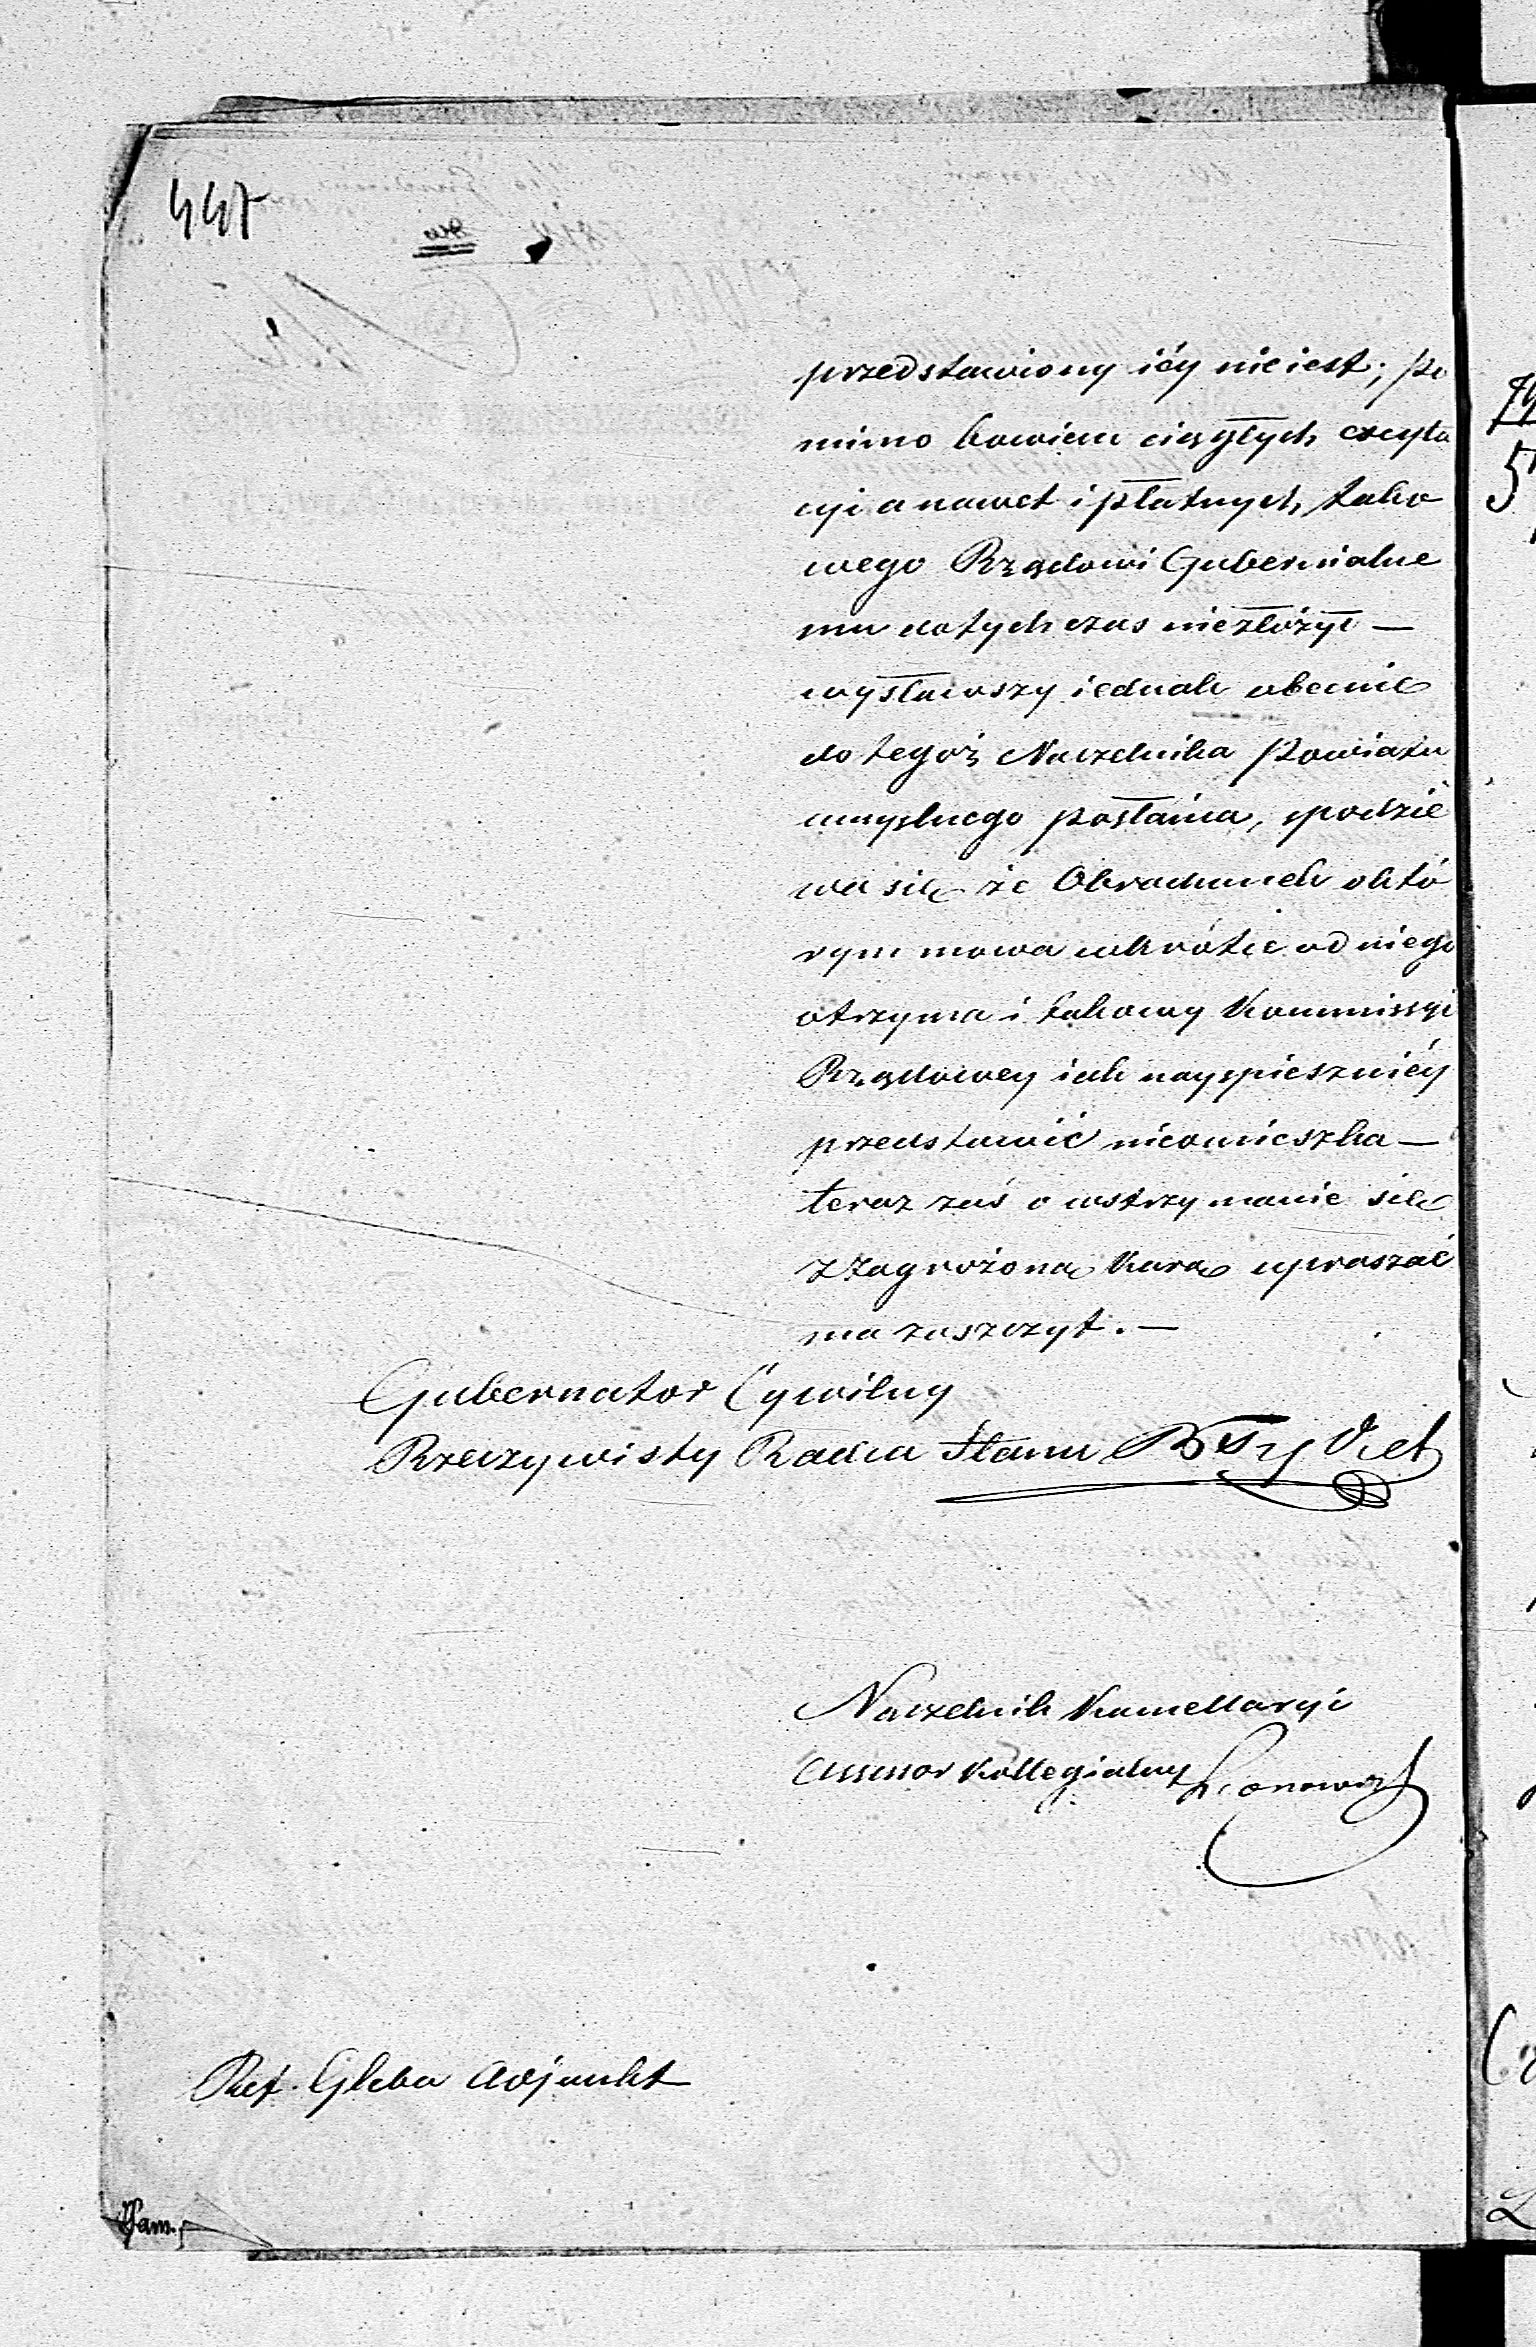 447
przedstawiony iéy nie iest; po
mimo bowiem ciągłych excyta
cyi a nawet i płatnych, tako
wego Rządowi Gubernialne
mu dotychczas niezłożył —
wysławszy iednak obecnie
do tegoż Naczelnika Powiatu
umyslnego posłańca, spodzie
wa się że Obrachunek októ
rym mowa wkrótce od niego
otrzyma i takowy Kommissyi
Rządowey iak nayspieszniéy
przedstawić nieomieszka —
teraz zaś o wstrzymanie się
z zagrożoną karą upraszać
ma zaszczyt. —
Gubernator Cywilny
Rzeczywisty Radca Stanu
Naczelnik Kancellaryi
Assessor Kollegialny
Ref. Gleba Adjunkt